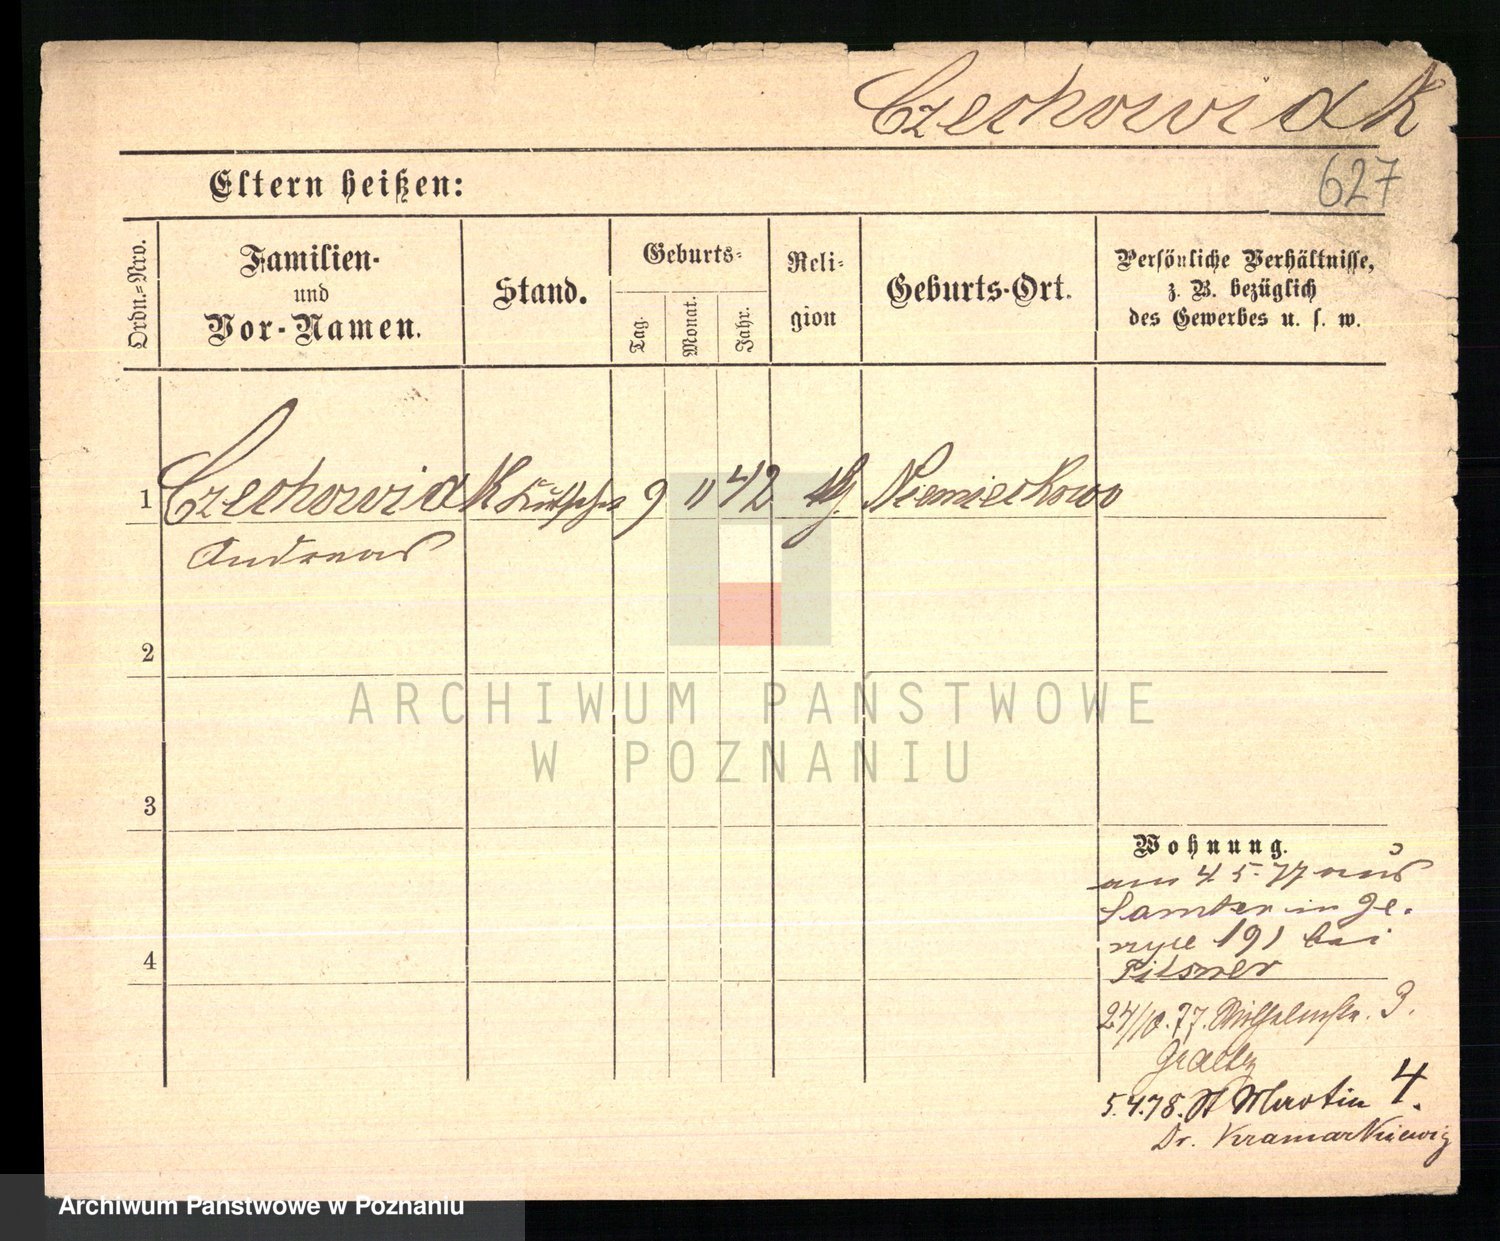 Czechowiak
627
Eltern heißen:
Ordn.=Nro.
Familien-
und
Vor-Namen.
Stand.
Geburts=
Tag.
Monat.
Jahr.
Reli-
gion
Geburts-Ort.
Persönliche Verhältnisse,
z. B. bezüglich
des Gewerbes u. s. w.
1 Czechowiak Kutscher 9 11 42 Niemieczkowo
Andreas
2
3
4
ARCHIWUM PAŃSTWOWE
W POZNANIU
Wohnung.
am 4 5 77 aus
Samter in Je-
rzyce 191 bei
Pilsner
24/10.77. Wilhelmstr. 3.
5.4.78. St Martin 4.
Dr. Kramarkiewicz
Archiwum Państwowe w Poznaniu